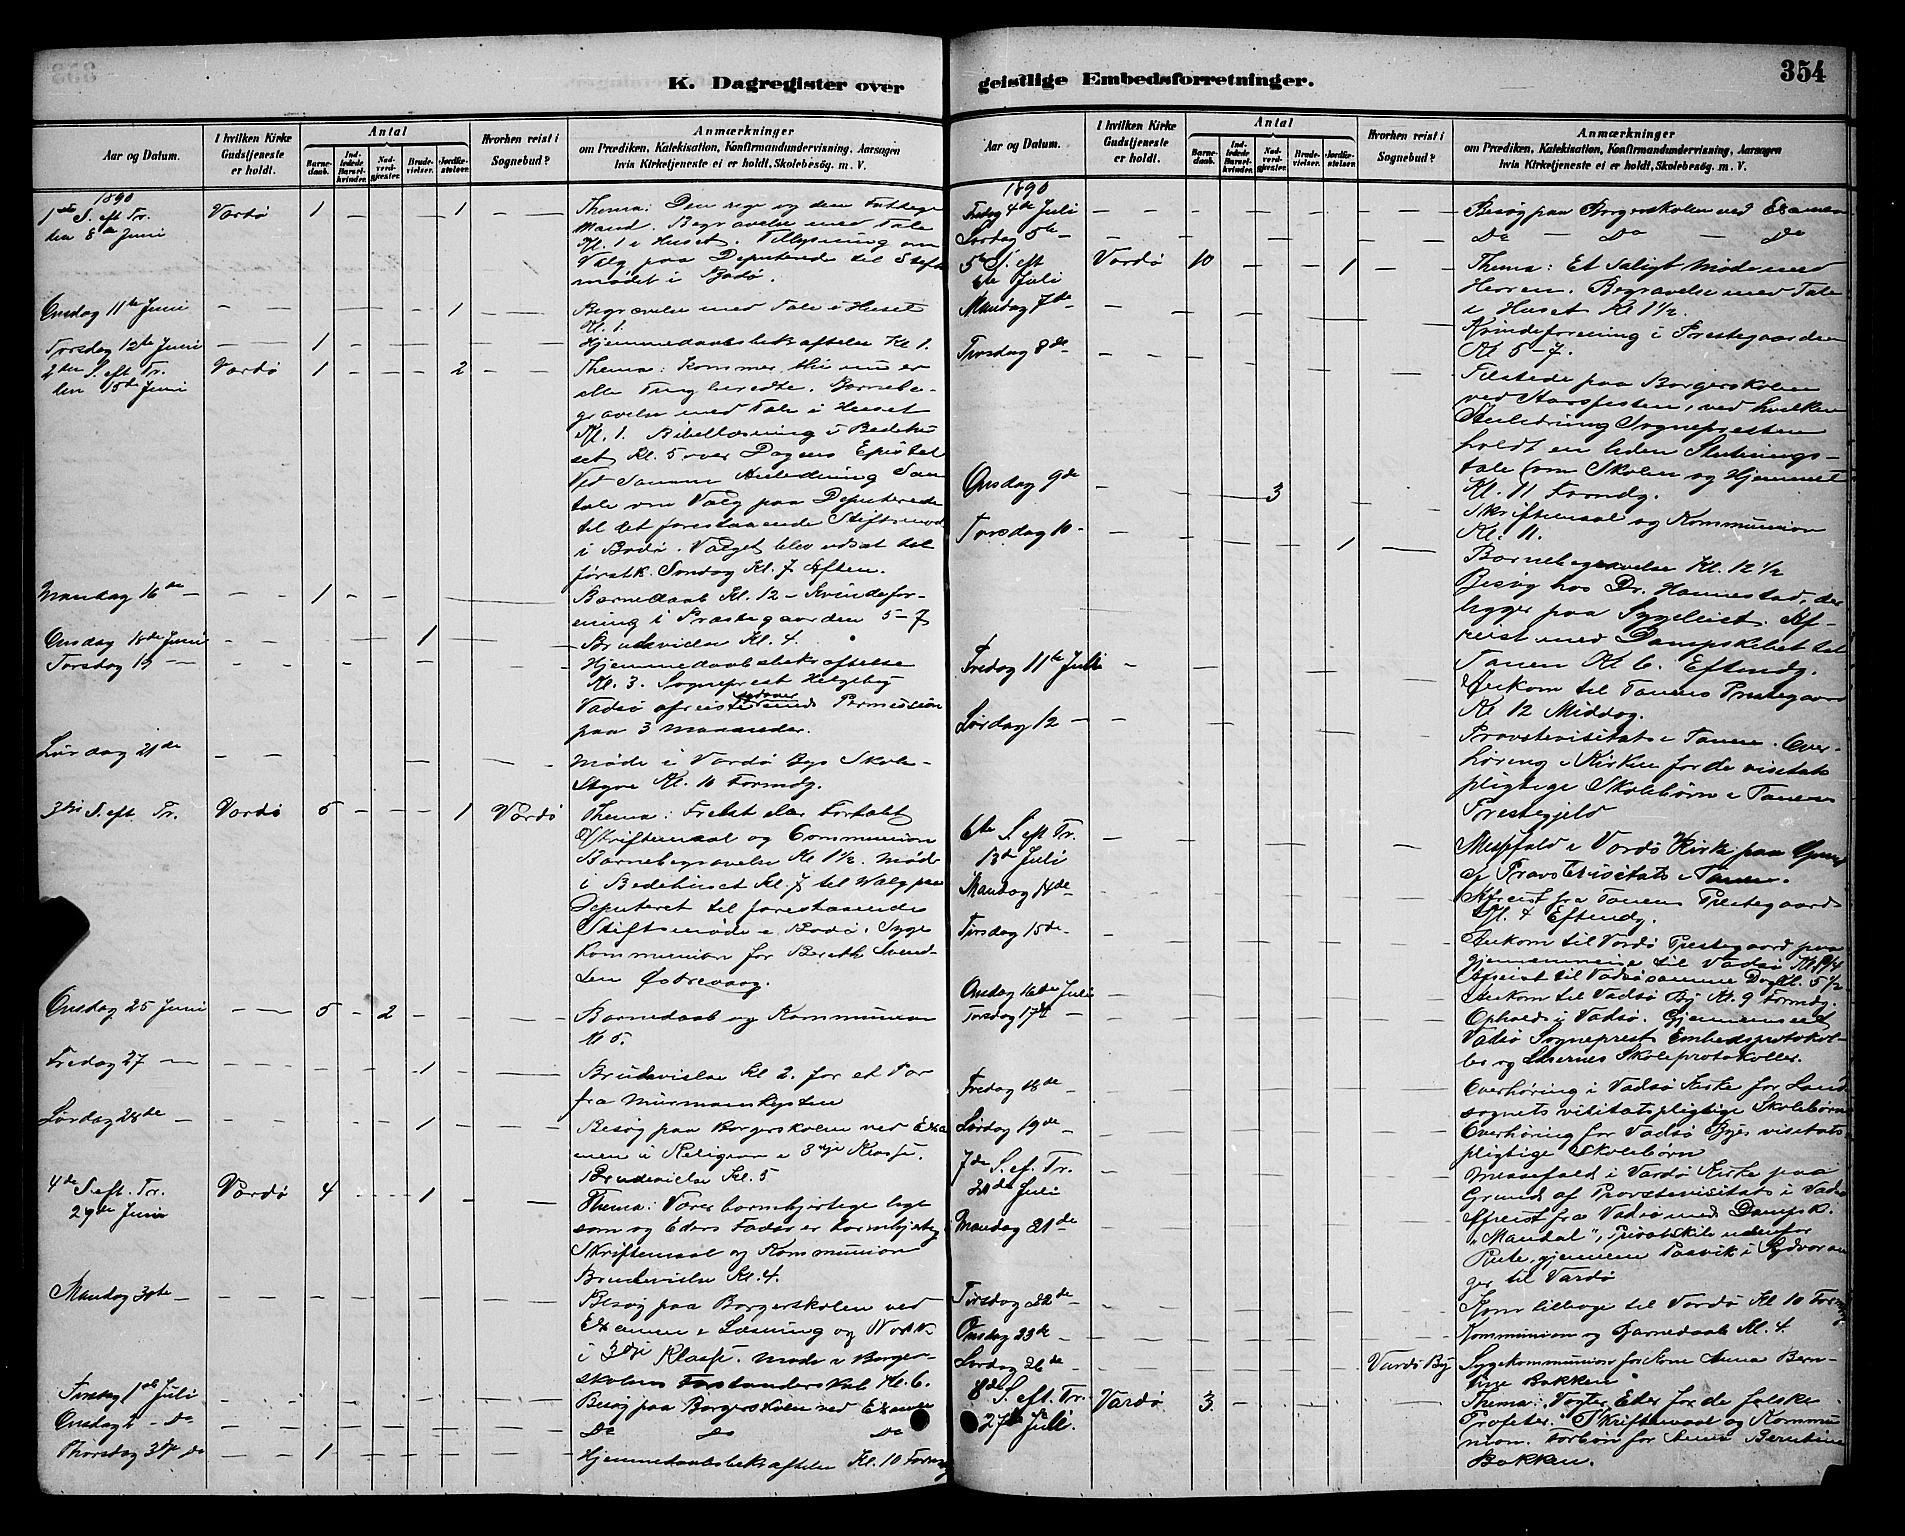 K. Dagregister over
geistlige Embedsforretninger.
354
Aar og Datum.
I hvilken Kirke Gudstjeneste er holdt.
Antal
Barnedaab.
Indledede Barselkvinder.
Nadverdgjester.
Brudevielser.
Jordfæstelser.
Hvorhen reist i Sognebud?
Anmærkninger
om Prædiken, Katekisation, Konfirmandundervisning, Aarsagen
hvis Kirketjeneste ei er holdt, Skolebesög. m. V.
1890
1ste S. eft Tr. Vardø 1 — — 1 Thema: Den rige og den Fattige
den 8de Juni Mand. Begravelse med Tale
Kl. 1 i Huset. Tillysning om
Valg paa Deputerede til Stifts
mödet i Bodø.
Onsdag 11te Juni — — — — 1 — Begravelse med Tale i Huset
Kl. 1.
Torsdag 12te Juni — 1 — — — Hjemmedaabsbekræftelse Kl 1.
2den S. eft Tr. Vardø 1 — — — 2 — — Thema: Kommer, thi nu er
den 15de Juni alle Ting beredte. Barnebe-
gravelse med Tale i Huset
Kl. 1. Bibellæsning i Bedehu
set Kl. 5 over Dagens Epistel
Ved samme Anledning Sam
tale om Valg paa Deputerede
til det forestaaende Stiftsmöde
i Bodø. Valget blev udsat til
førstk. Søndag Kl. 7 Aften.
Mandag 16de — — — 1 — — Barnedaab Kl. 12 — Kvindefor-
ening i Præstegaarden 5–7
Onsdag 18de Juni — — — — 1 Brudevielse Kl. 4.
Torsdag 19 — — — — — Hjemmedaabsbekræftelse
Kl. 3. Sogneprest
Vadsø afreist med Permission
paa 3 Maaneder.
Lördag 21de — — — — Möde i Vardø Bys Skole-
styre Kl. 10 Formdg.
3die S. eft. Tr. Vardø 5 — — — 1 Vardø Thema: Frelst eller Fortabt
Skriftemaal og Communion
Barnebegravelse Kl 1½. Möde
i Bedehuset Kl. 7 til Valg paa
Deputeret til forestaaende
Stiftsmöde i Bodø. Syge
kommunion for Berethe Svend-
sen Østrevaag.
Onsdag 25 Juni — — 5 — 2 — — Barnedaab og Kommunion
Kl 5.
Fredag 27 — — — — — 1 — Brudevielse Kl 2. for et Par
fra Murmanskysten
Lördag 28de — — — — 1 — Besög paa Borgerskolen ved Exa
men i Religion i 3die Klasse.
Brudevielse Kl. 5
4de S. eft. Tr. Vardø 4 — — 1 — — Thema: Værer barmhjertige lige
29de Juni som og Eders Fader er barmhjertig
Skriftemaal og Kommunion
Brudevielse Kl. 4.
Mandag 30te — — — — — Besög paa Borgerskolen ved
Examen i Læsning og Norsk
i 3die Klasse. Möde i Borger-
skolens Forstanderskab Kl. 6.
Tirsdag 1ste Juli — — — — Besög paa Borgerskolen ved Examen
Onsdag 2 — do — — — — Do Do Do
Thorsdag 3die do — 1 — — — Hjemmedaabsbekræftelse Kl. 10 Formdg
Aar og Datum.
I hvilken Kirke Gudstjeneste er holdt.
Antal
Barnedaab.
Indledede Barselkvinder.
Nadverdgjester.
Brudevielser.
Jordfæstelser.
Hvorhen reist i Sognebud?
Anmærkninger
om Prædiken, Katekisation, Konfirmandundervisning, Aarsagen
hvis Kirketjeneste ei er holdt, Skolebesög. m. V.
1890
Fredag 4de Juli — — — — — Besög paa Borgerskolen ved Examen
Lördag 5te — — — — — Do — Do — Do
5te S. eft Vardø 10 — — — 1 — — Thema: Et saligt Möde med
6te Juli Herren. Begravelse med Tale
i Huset Kl 1½.
Mandag 7de — — — — — Kvindeforening i Præstegaarden
Kl 5–7.
Tirsdag 8de — — — — — Tilstede paa Borgerskolen
ved Aarsfesten, ved hvilken
Anledning Sognepresten
holdt en liden Slutnings-
tale om Skolen og Hjemmet
Kl. 11 Formdg.
Onsdag 9de — — — 3 — — Skriftemaal og Kommunion
Kl. 11.
Torsdag 10 — — — — — 1 — Barnebegravelse Kl. 12½
Besög hos Dr. Hannestad, der
ligger paa Sygeleiet. Af-
reist med Dampskibet til
Tanen Kl 6. Eftmdg.
Fredag 11te Juli — — — — — Ankom til Tanens Prestegaard
Kl 12 Middag.
Lördag 12 — — — — — Provstevisitats i Tanen. Over-
höring i Kirken for de visitats
pligtige Skolebörn i Tanens
Prestegjeld
6te S. eft Tr. — — — — — Messefald i Vardø Kirke paa Grund
13de Juli af Provstevisitats i Tanen.
Mandag 14de — — — — — Afreist fra Tanens Prestegaard
Kl. 4 Eftmdg.
Tirsdag 15de — — — — — Ankom til Vardø Prestegaard paa
gjennemreise til Vadsø Kl.
Afreist til Vadsø samme Dag Kl. 5½
Onsdag 16de Juli — — — — — Ankom til Vadsø By Kl. 9 Formdg.
Torsdag 17de — — — — — Ophold i Vadsø. Gjennemseet
Vadsø Sogneprest Embedsprotokol-
ler og Lærernes Skoleprotokoller.
Fredag 18de — — — — — Overhöring i Vadsø Kirke for Land
sognets visitatspligtige Skolebörn
Lördag 19de — — — — — Overhöring for Vadsø Byes visitats
pligtige Skolebörn
7de S. ef. Tr. — — — — — Messefald i Vardø Kirke paa
20de Juli Grund af Provstevisitats i Vadsø
Mandag 21de — — — — — Afreist fra Vadsø med Dampsk.
„Mandal”, Privatskib udenfor
Rute, gjennem Pasvik i Sydvaran
ger til Vardø
Tirsdag 22de — — — — — Kom tilbage til Vardø Kl 10 Formdg
Onsdag 23de — — — — — Kommunion og Barnedaab Kl. 4.
Lördag 26de — — — — — Vardø By Sygekommunion for Kone Anna Bern-
tine Bakken
8de S. eft. Tr. Vardø 3. — — — — Thema: Vogter Eder for de falske
27de Juli. Profeter. Skriftemaal og Kommu
nion. Forbön for Anna Berntine
Bakken.